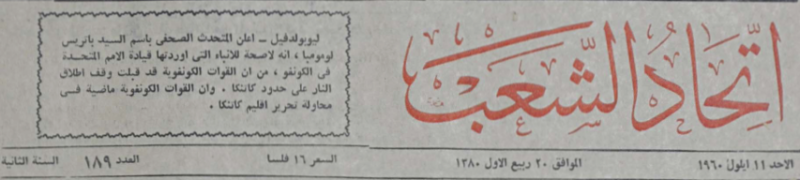 اتحاد الشعب
ليوبولدفيل ــ اعلن المتحدث الصحفي باسم السيد باتريس
لومومبا ، انه لاصحة للانباء التي اوردتها قيادة الامم المتحدة
في الكونغو ، من ان القوات الكونغوية قد قبلت وقف اطلاق
النار على حدود كاتنكا . وان القوات الكونغوية ماضية فسي
محاولة تحرير اقليم كاتنكا .
الاحد ١١ ايلول ١٩٦٠ الموافق ٢٠ ربيع الاول ١٣٨٠ السعر ١٦ فلسا العدد ١٨٩ السنة الثانية